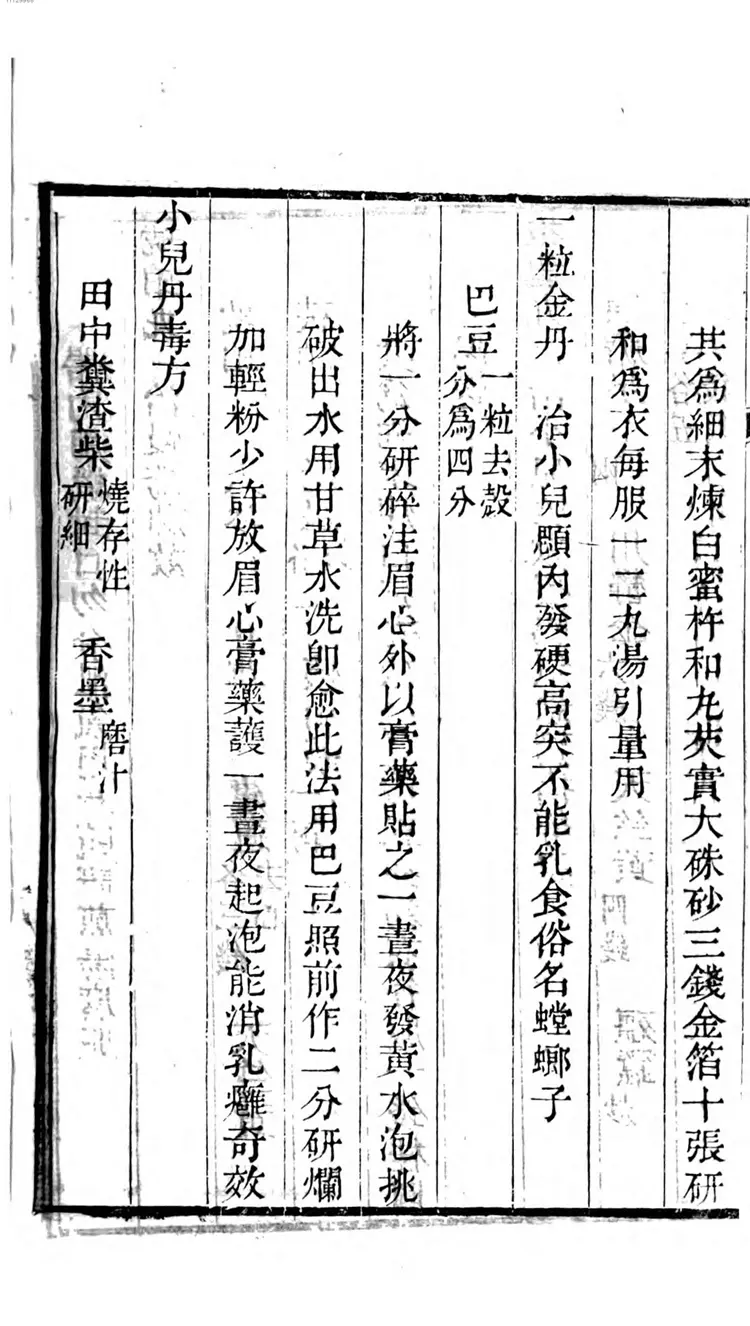 共爲細末煉白蜜杵和丸芡實大硃砂三錢金箔十張研
和爲衣每服一二丸湯引量用
一粒金丹　治小兒顋內發硬高突不能乳食俗名螳螂子
巴豆一粒去殼分爲四分
將一分研碎注眉心外以膏藥貼之一晝夜發黃水泡挑
破出水用甘草水洗卽愈此法用巴豆照前作二分研爛
加輕粉少許放眉心膏藥護一晝夜起泡能消乳癰奇效
小兒丹毒方
田中糞渣柴燒存性研細　香墨磨汁